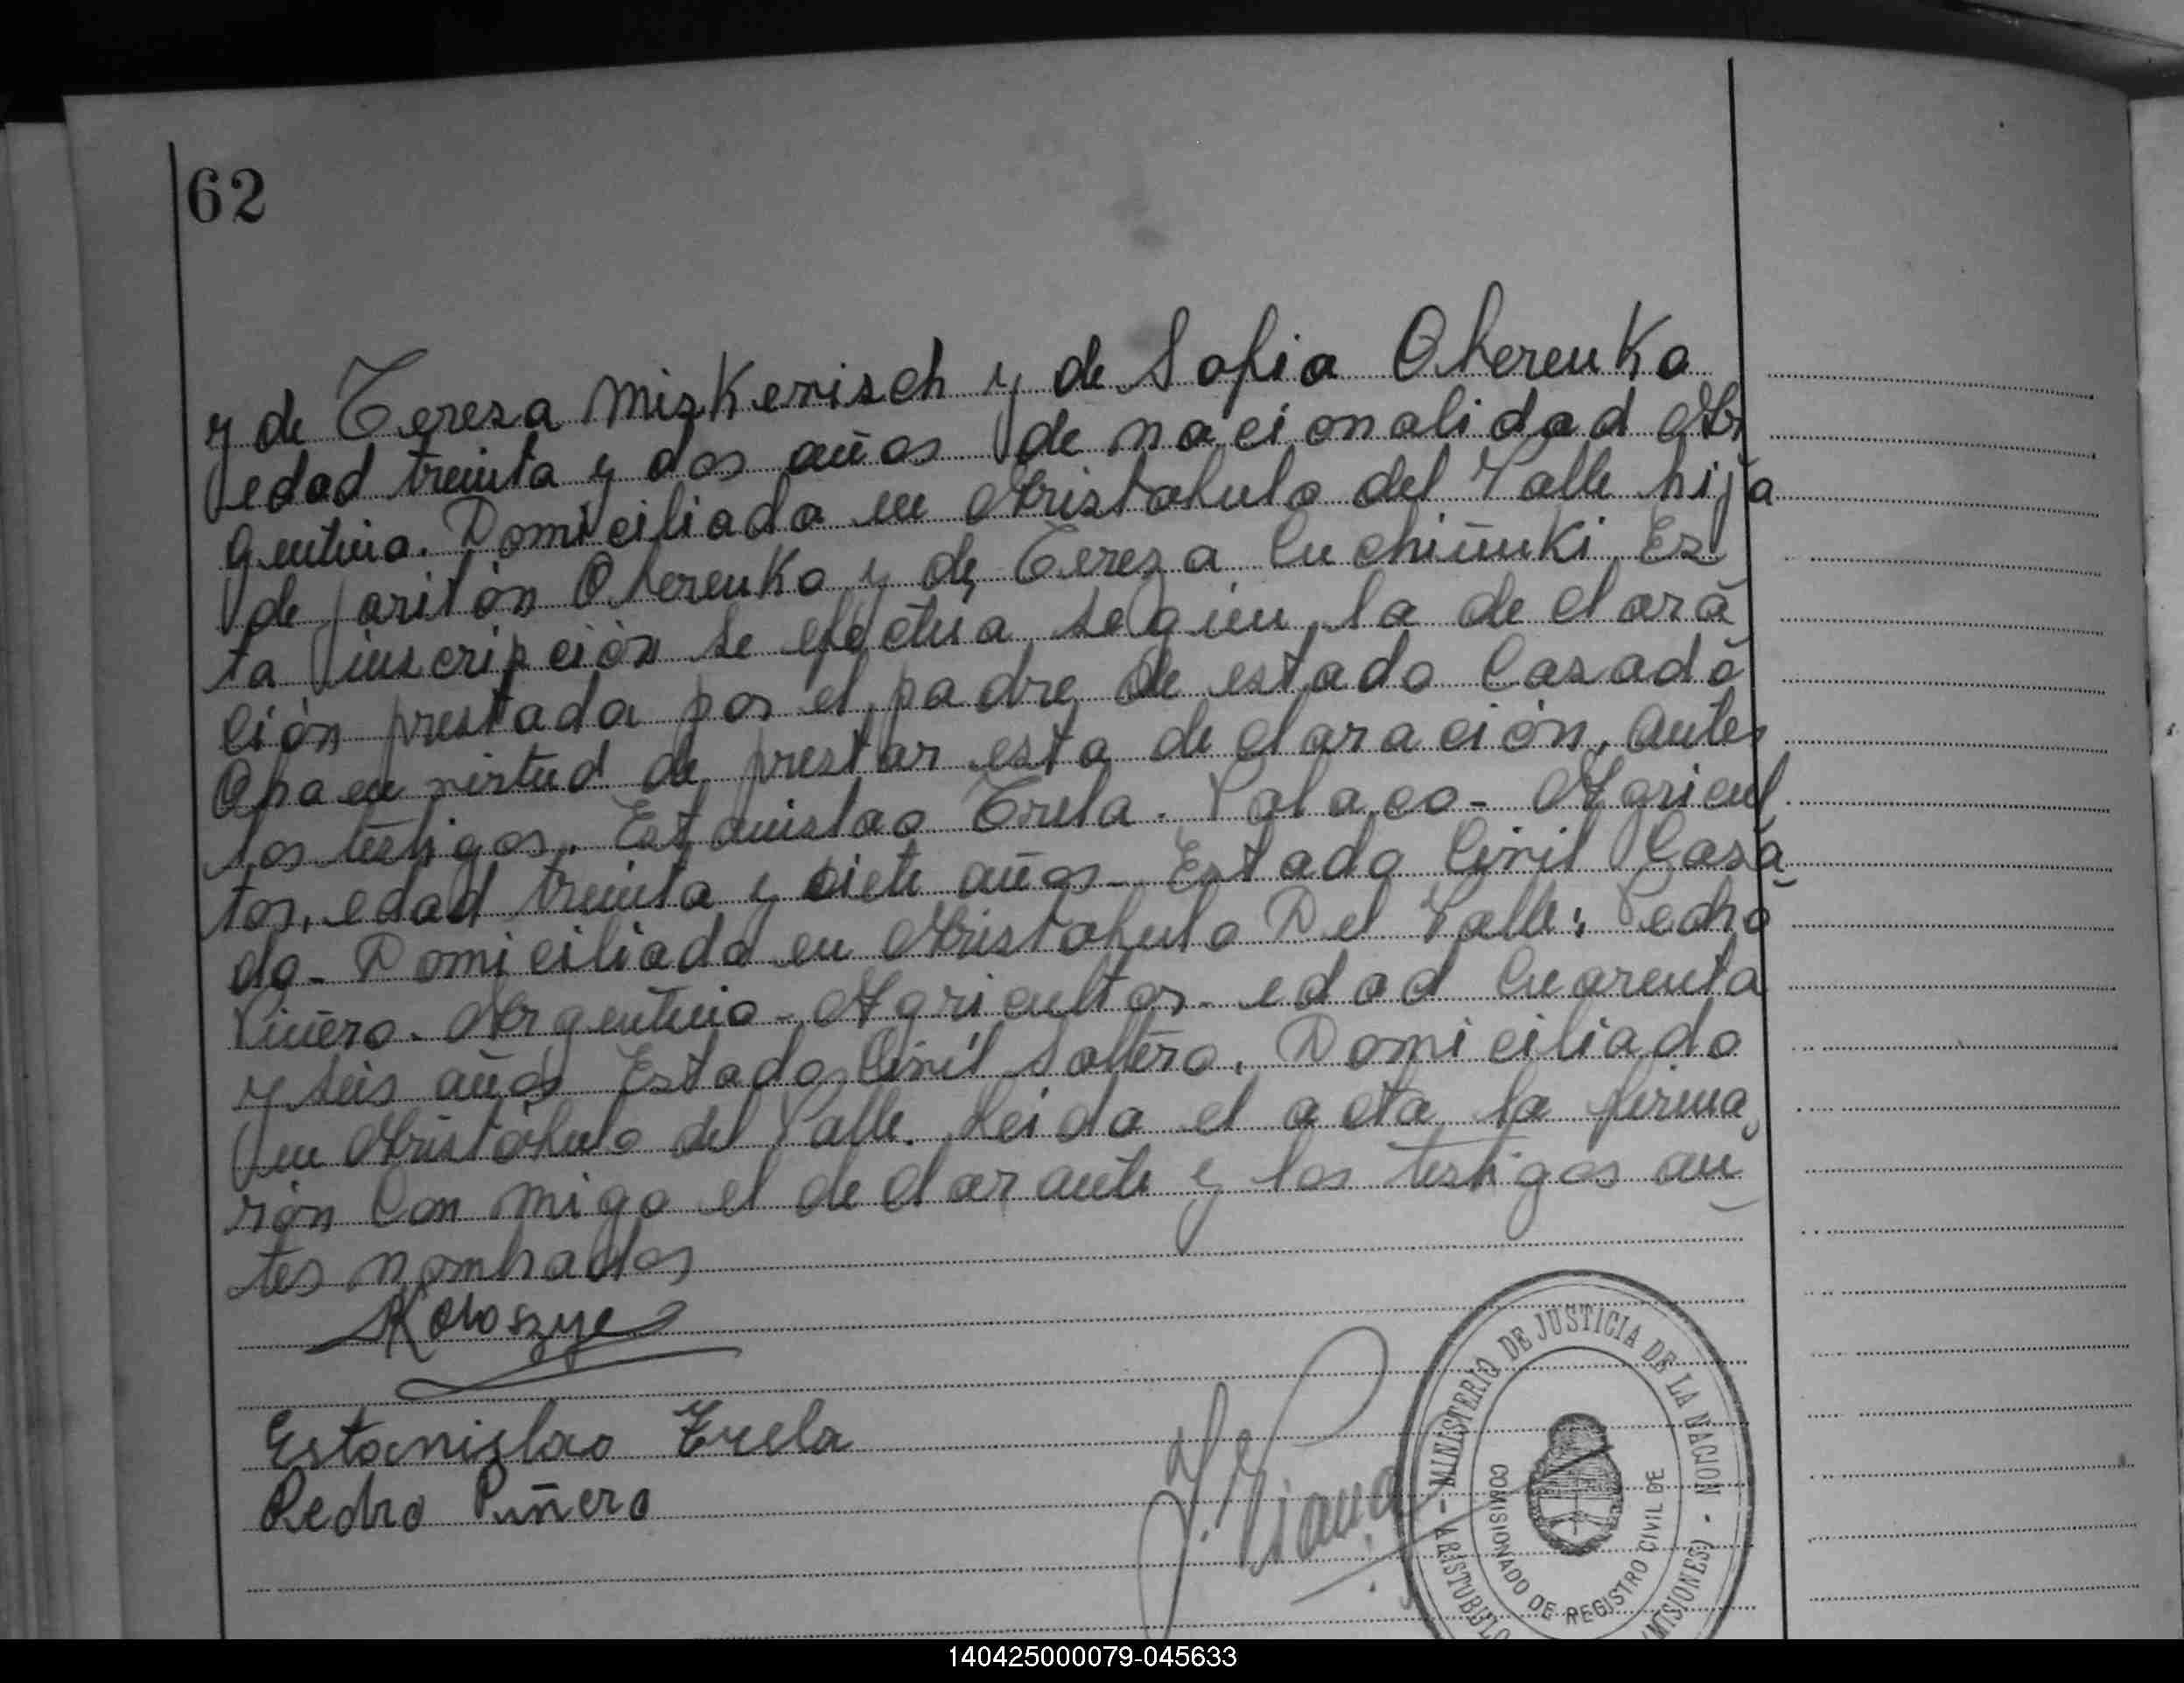 62
y de Tereza Miskenisch y de Sofia Oherenko
edad treinta y dos años de nacionalidad Ar
gentina. Domiciliada en Aristobulo del Valle hija
de Oherenko y de Tereza Es
ta inscripción se efectúa según la declara
ción prestada por el padre de estado Casado
en virtud de prestar esta declaración, antes
los testigos. Estanislao Trela. Polaco - Agricul
tor, edad treinta y siete años - Estado Civil Casa
do - Domiciliado en Aristobulo Del Valle; Pedro
Piñero - Argentino - Agricultor - edad Cuarenta
y seis años Estado Civil Soltero. Domiciliado
en Aristobulo del Valle. Leida el acta la firma
rón Con migo el declarante y los testigos an
tes nombrados
Estanislao Trela
Pedro Piñero
MINISTERIO DE JUSTICIA DE LA NACION
COMISIONADO DE REGISTRO CIVIL DE
ARISTOBULO (MISIONES)
140425000079-045633